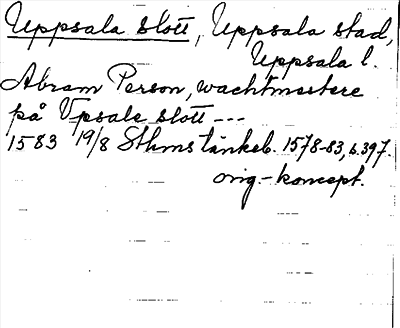 Uppsala slott, Uppsala stad,
Uppsala l.
Abram Person, wachtmestere
på Vpsale slott ---
1583 19/8 Sthms tänkeb. 1578-83, s. 397.
orig.-koncept.